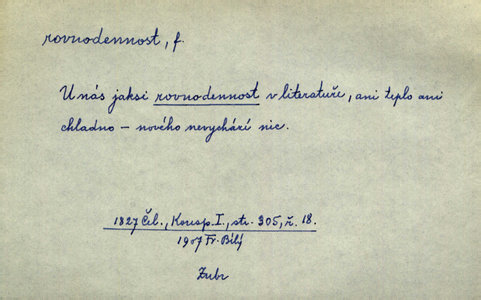 rovnodennost, f.
U nás jaksi rovnodennost v literatuře, ani teplo ani
chladno – nového nevychází nic.
1827 Čel., Koresp. I., str. 305, ř. 18.
1907 Fr. Bílý
Zubr